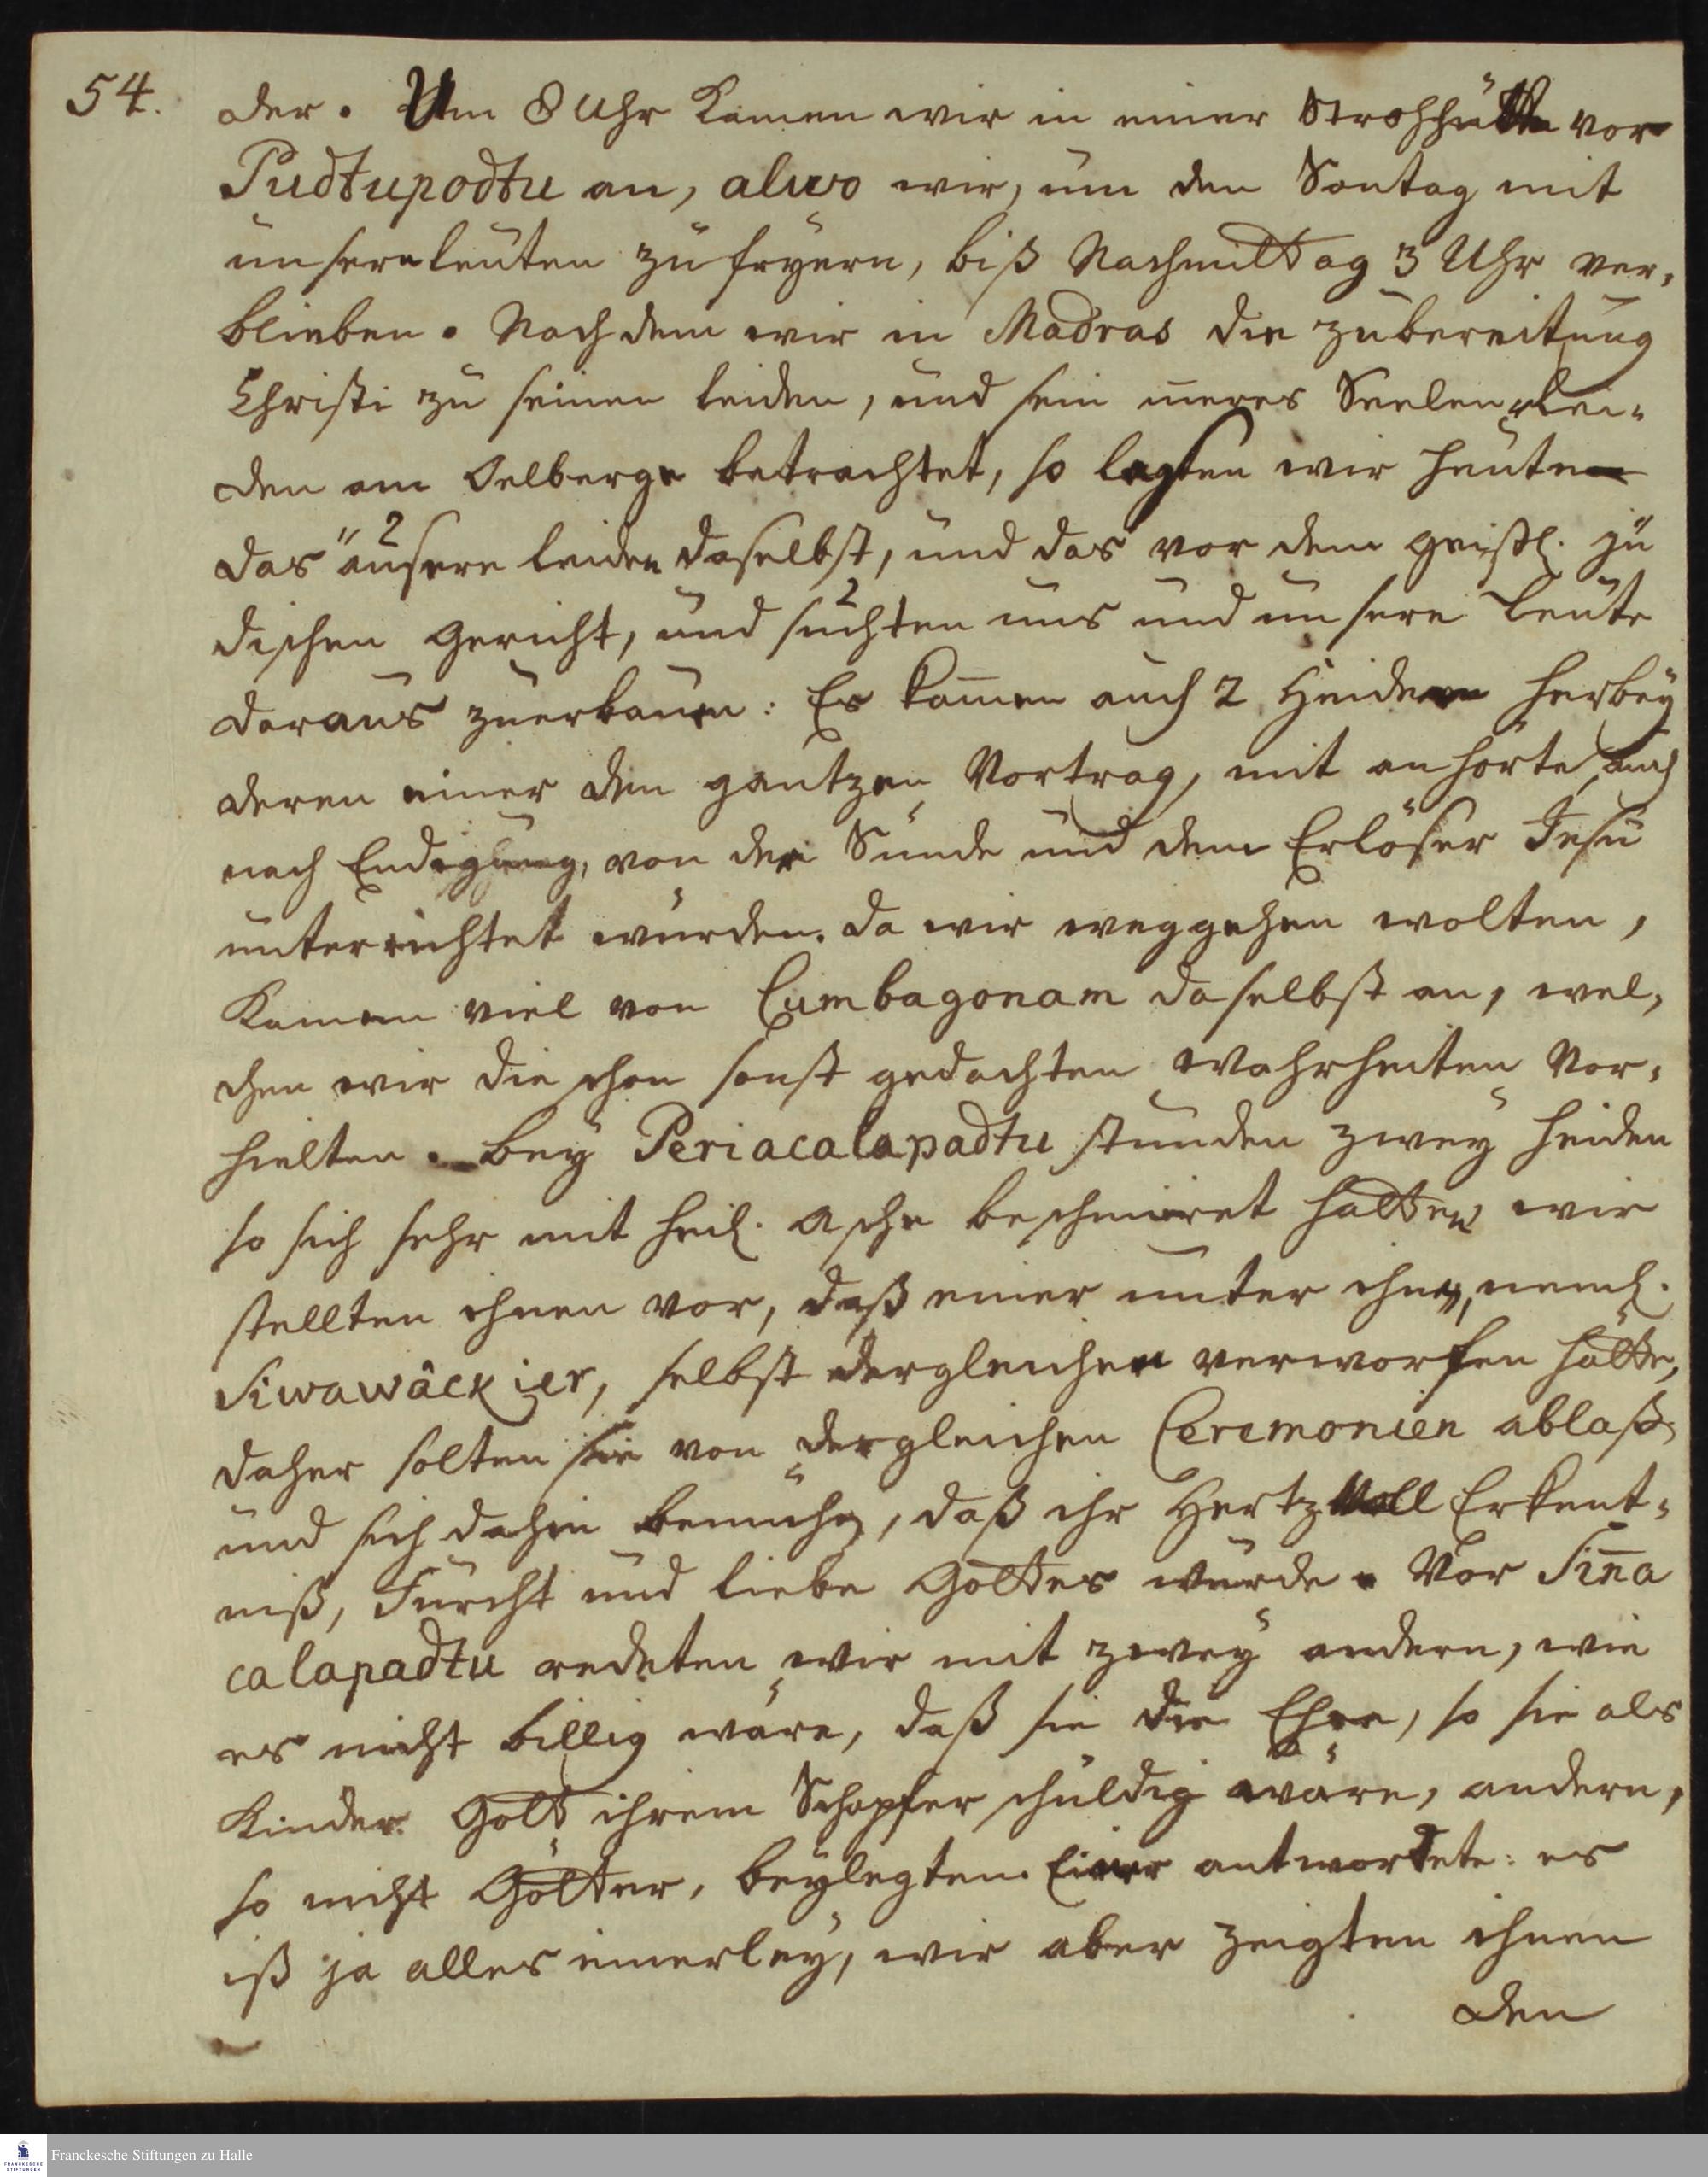 54.
der. Um 8 Uhr kamen wir in einer Strohhütte vor
Pudtupodtu an, alwo wir, um den Sontag mit
unsern leuten zu feyern, biß Nachmittag 3 Uhr ver,
blieben. Nachdem wir in Madras die zubereitung
Christi zu seinen leiden, und sein inneres Seelen-lei-
den am Oelberge betrachtet, so legten wir heute
das äusere leiden daselbst, und das vor dem geistl. jü
dischen Gericht, und suchten uns und unsere leute
daraus zuerbauen: Es kamen auch 2 Heiden herbey
deren einer den gantzen Vortrag, mit anhörte, auch
nach Endigung, von der Sünde und dem Erlöser Jesu
unterrichtet wurden. da wir weggehen wolten,
kamen viel von Cumbagonam daselbst an, wel,
chen wir die schon sonst gedachten wahrheiten Vor-
hielten. bey Periacalapadtu stunden zwey heiden
so sich sehr mit heil. Asche beschmiret hatten wir
stellten ihnen vor, daß einer unter ihnen, neml.
Siwawäckier, selbst dergleichen verworfen hätte,
daher solten sie von dergleichen Ceremonien ablaßen
und sich dahin bemühen, daß ihr Hertz voll Erkent-
niß, Furcht und liebe Gottes würde. Vor Sin̄a
calapadtu redeten wir mit zwey andern, wie
es nicht billig wäre, daß sie die Ehre, so sie als
Kinder Gott ihrem Schopfer schuldig wären, andern,
so nicht Götter, beylegten. Einer antwortete: es
iß ja alles einerley, wir aber zeigten ihnen
den
Franckesche Stiftungen zu Halle